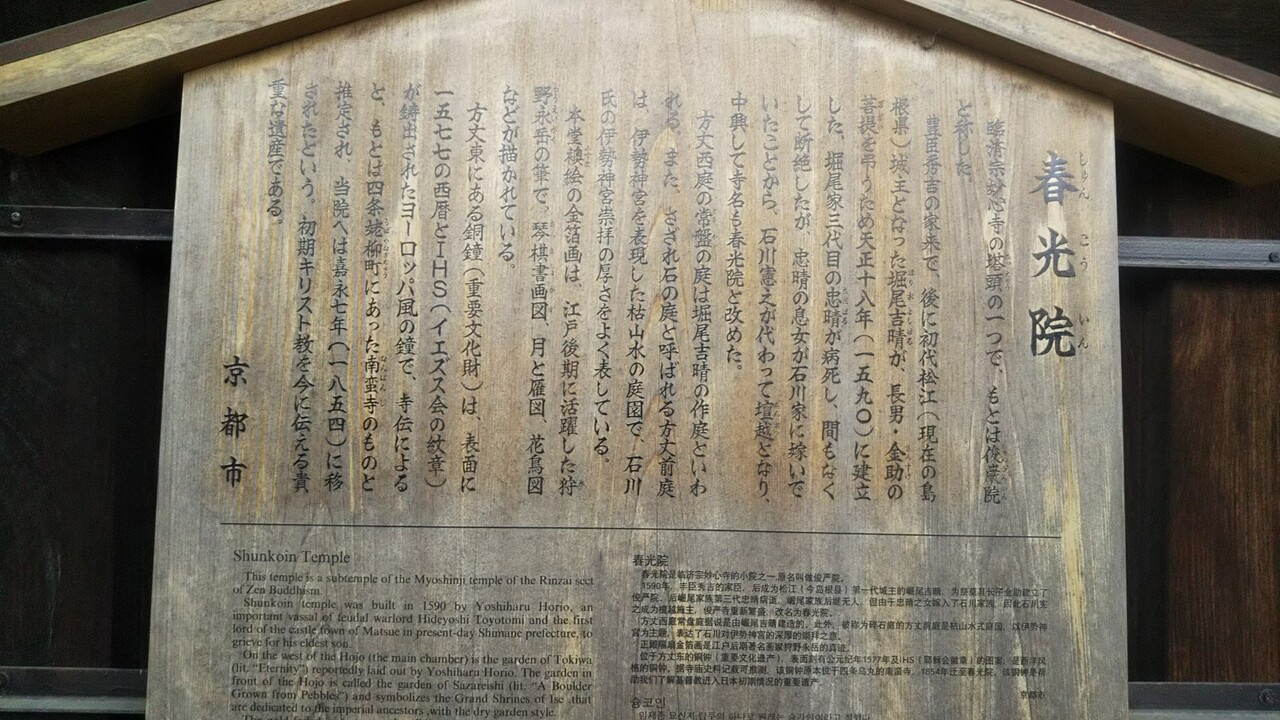 春光院
しゅん こう いん
臨済宗妙心寺の塔頭の一つで、もとは俊巖院
と称した。
豊臣秀吉の家来で、後に初代松江(現在の島
根県)城主となった堀尾吉晴が、長男・金助の
菩提を弔うため天正十八年(一五九〇)に建立
した。堀尾家三代目の忠晴が病死し、間もなく
して断絶したが、忠晴の息女が石川家に嫁いで
いたことから、石川憲之が代わって壇越となり、
中興して寺名も春光院と改めた。
方丈西庭の常盤の庭は堀尾吉晴の作庭といわ
れる。また、さざれ石の庭と呼ばれる方丈前庭
は、伊勢神宮を表現した枯山水の庭園で、石川
氏の伊勢神宮崇拝の厚さをよく表している。
本堂襖絵の金箔画は、江戸後期に活躍した狩
野永岳の筆で、琴棋書画図、月と雁図、花鳥図
などが描かれている。
方丈東にある銅鐘(重要文化財)は、表面に
一五七七の西暦とIHS(イエズス会の紋章)
が鋳出されたヨーロッパ風の鐘で、寺伝による
と、もとは四条姥柳町にあった南蛮寺のものと
推定され、当院へは嘉永七年(一八五四)に移
されたという。初期キリスト教を今に伝える貴
重な遺産である。
京都市
Shunkoin Temple
This temple is a subtemple of the Myoshinji temple of the Rinzai sect
of Zen Buddhism.
Shunkoin temple was built in 1590 by Yoshiharu Horio, an
important vassal of feudal warlord Hideyoshi Toyotomi and the first
lord of the castle town of Matsue in present-day Shimane prefecture, to
grieve for his eldest son.
On the west of the Hojo (the main chamber) is the garden of Tokiwa
(lit. "Eternity") reportedly laid out by Yoshiharu Horio. The garden in
front of the Hojo is called the garden of Sazareishi (lit. "A Boulder
Grown from Pebbles") and symbolizes the Grand Shrines of Ise ,that
are dedicated to the imperial ancestors ,with the dry garden style.
春光院
春光院是临济宗妙心寺的小院之一,原名叫做俊严院。
1590年,丰臣秀吉的家臣,后成为松江(今岛根县)第一代城主的崛尾吉晴,为祭奠其长子金助建立了
俊严院。后崛尾家族第三代忠晴病逝,崛尾家族后继无人,但由于忠晴之女嫁入了石川家族,因此石川宪
之成为檀越施主,俊严寺重新繁盛,改名为春光院。
方丈西庭常盘庭据说是由崛尾吉晴建造的。此外,被称为碎石庭的方丈前庭是枯山水式庭园,以伊势神
宫为主题,表达了石川对伊势神宫的深厚的崇拜之意。
正殿隔扇金箔画是江户后期著名画家狩野永岳的真迹。
位于方丈东的铜钟(重要文化遗产),表面刻有公元纪年1577年及IHS(耶稣会徽章)的图案,是西洋风
格的铜钟。据寺庙史料记载可推测,该铜钟原本位于四条乌丸的南蛮寺,1854年迁至春光院。该铜钟是帮
助我们了解基督教进入日本初期情况的重要遗产。
京都市
슌코인